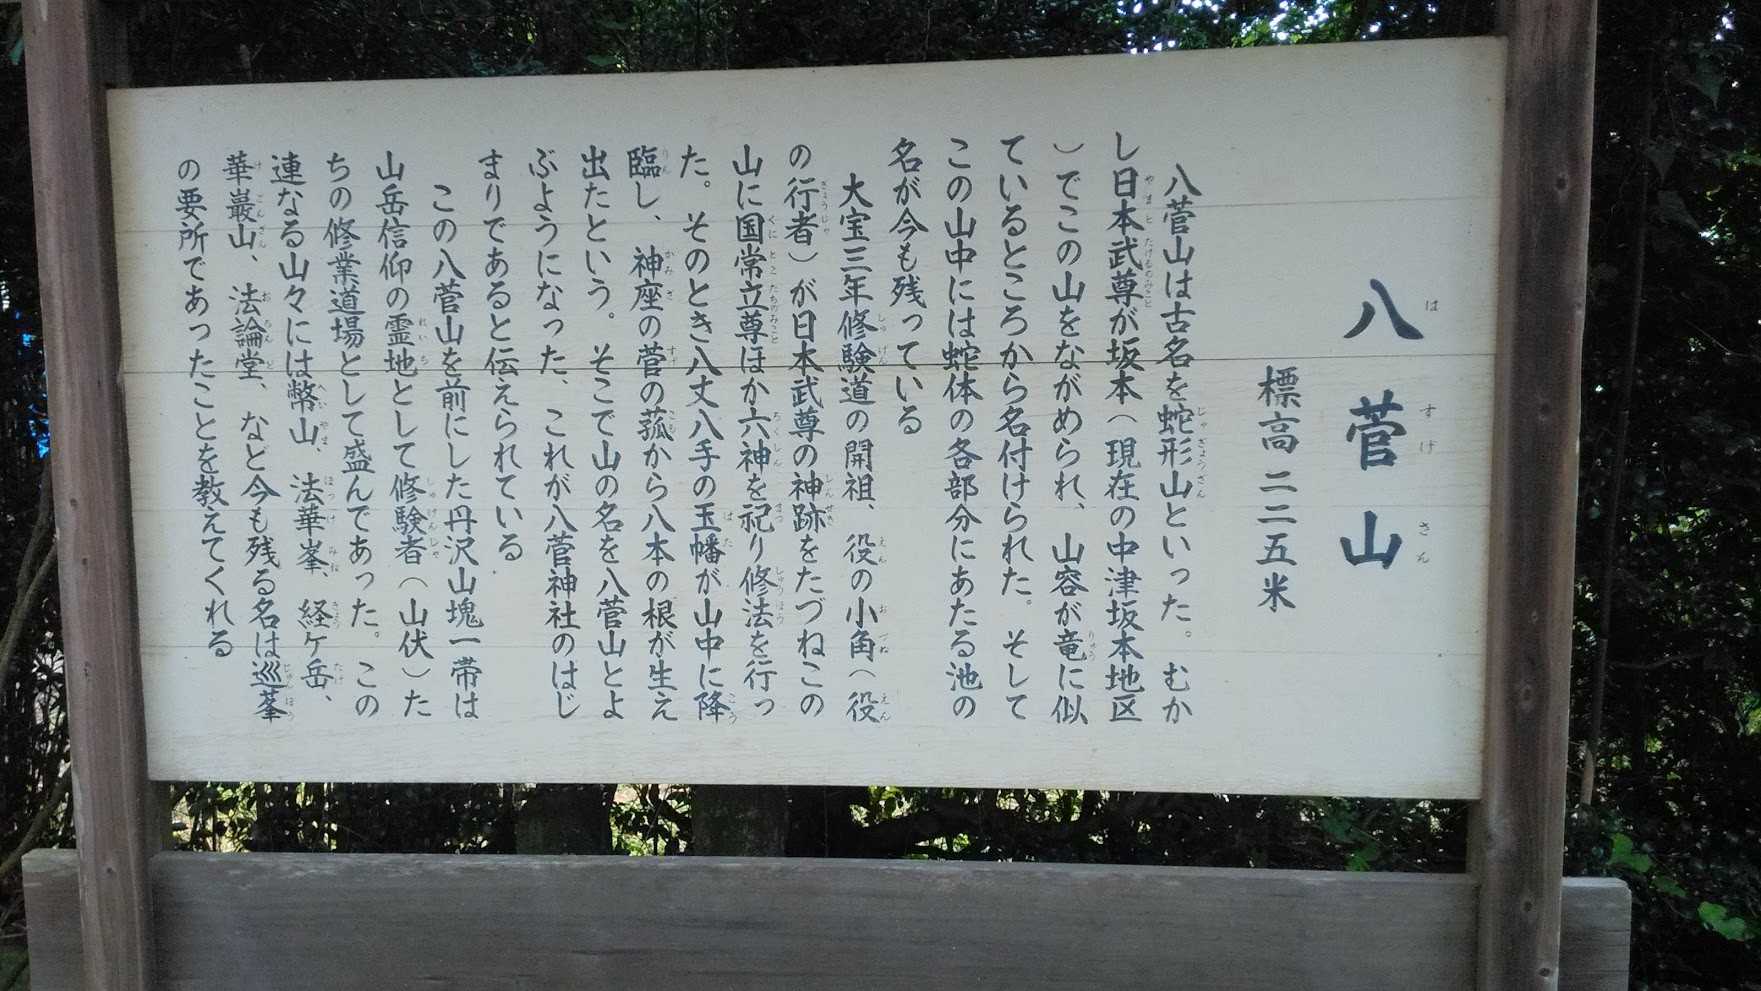 八菅山
標高二二五米
八菅山は古名を蛇形山といった。むか
し日本武尊が坂本（現在の中津坂本地区
）でこの山をながめられ、山容が竜に似
ているところから名付けられた。そして
この山中には蛇体の各部分にあたる池の
名が今も残っている
大宝三年修験道の開祖、役の小角（役
の行者）が日本武尊の神跡をたづねこの
山に国常立尊ほか六神を祀り修法を行っ
た。そのとき八丈八手の玉幡が山中に降
臨し、神座の菅の菰から八本の根が生え
出たという。そこで山の名を八菅山とよ
ぶようになった、これが八菅神社のはじ
まりであると伝えられている
この八菅山を前にした丹沢山塊一帯は
山岳信仰の霊地として修験者（山伏）た
ちの修業道場として盛んであった。この
連なる山々には幣山、法華峯、経ケ岳、
華巌山、法論堂、など今も残る名は巡峯
の要所であったことを教えてくれる